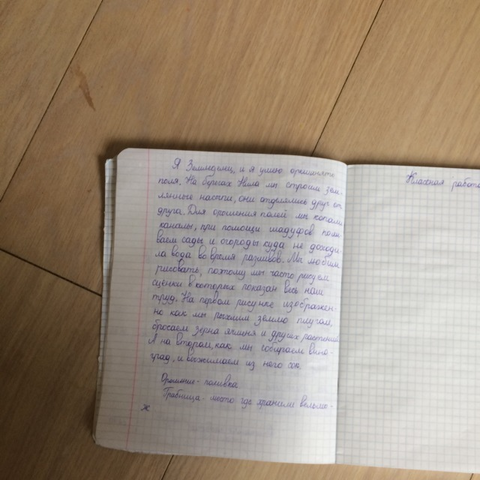 Я Земледелец, и я умею орошать
поля. На берегах Нила мы строим зем-
лянные насыпи, они отделялись друг от
друга. Для орошения полей мы копали
каналы, при помощи шадуфов поли-
ваем сады и огороды куда не доходи-
ла вода во время разливов. Мы любим
рисовать, поэтому мы часто рисуем
сценки в которых показан весь наш
труд. На первом рисунке изображен-
но как мы рыхлим землю плугом,
бросаем зёрна ячменя и других растений
А на втором, как мы собираем вино-
град, и выжимаем из него сок.
Орошение - поливка
Гробница - место где хранили вельмож-
Классная работа